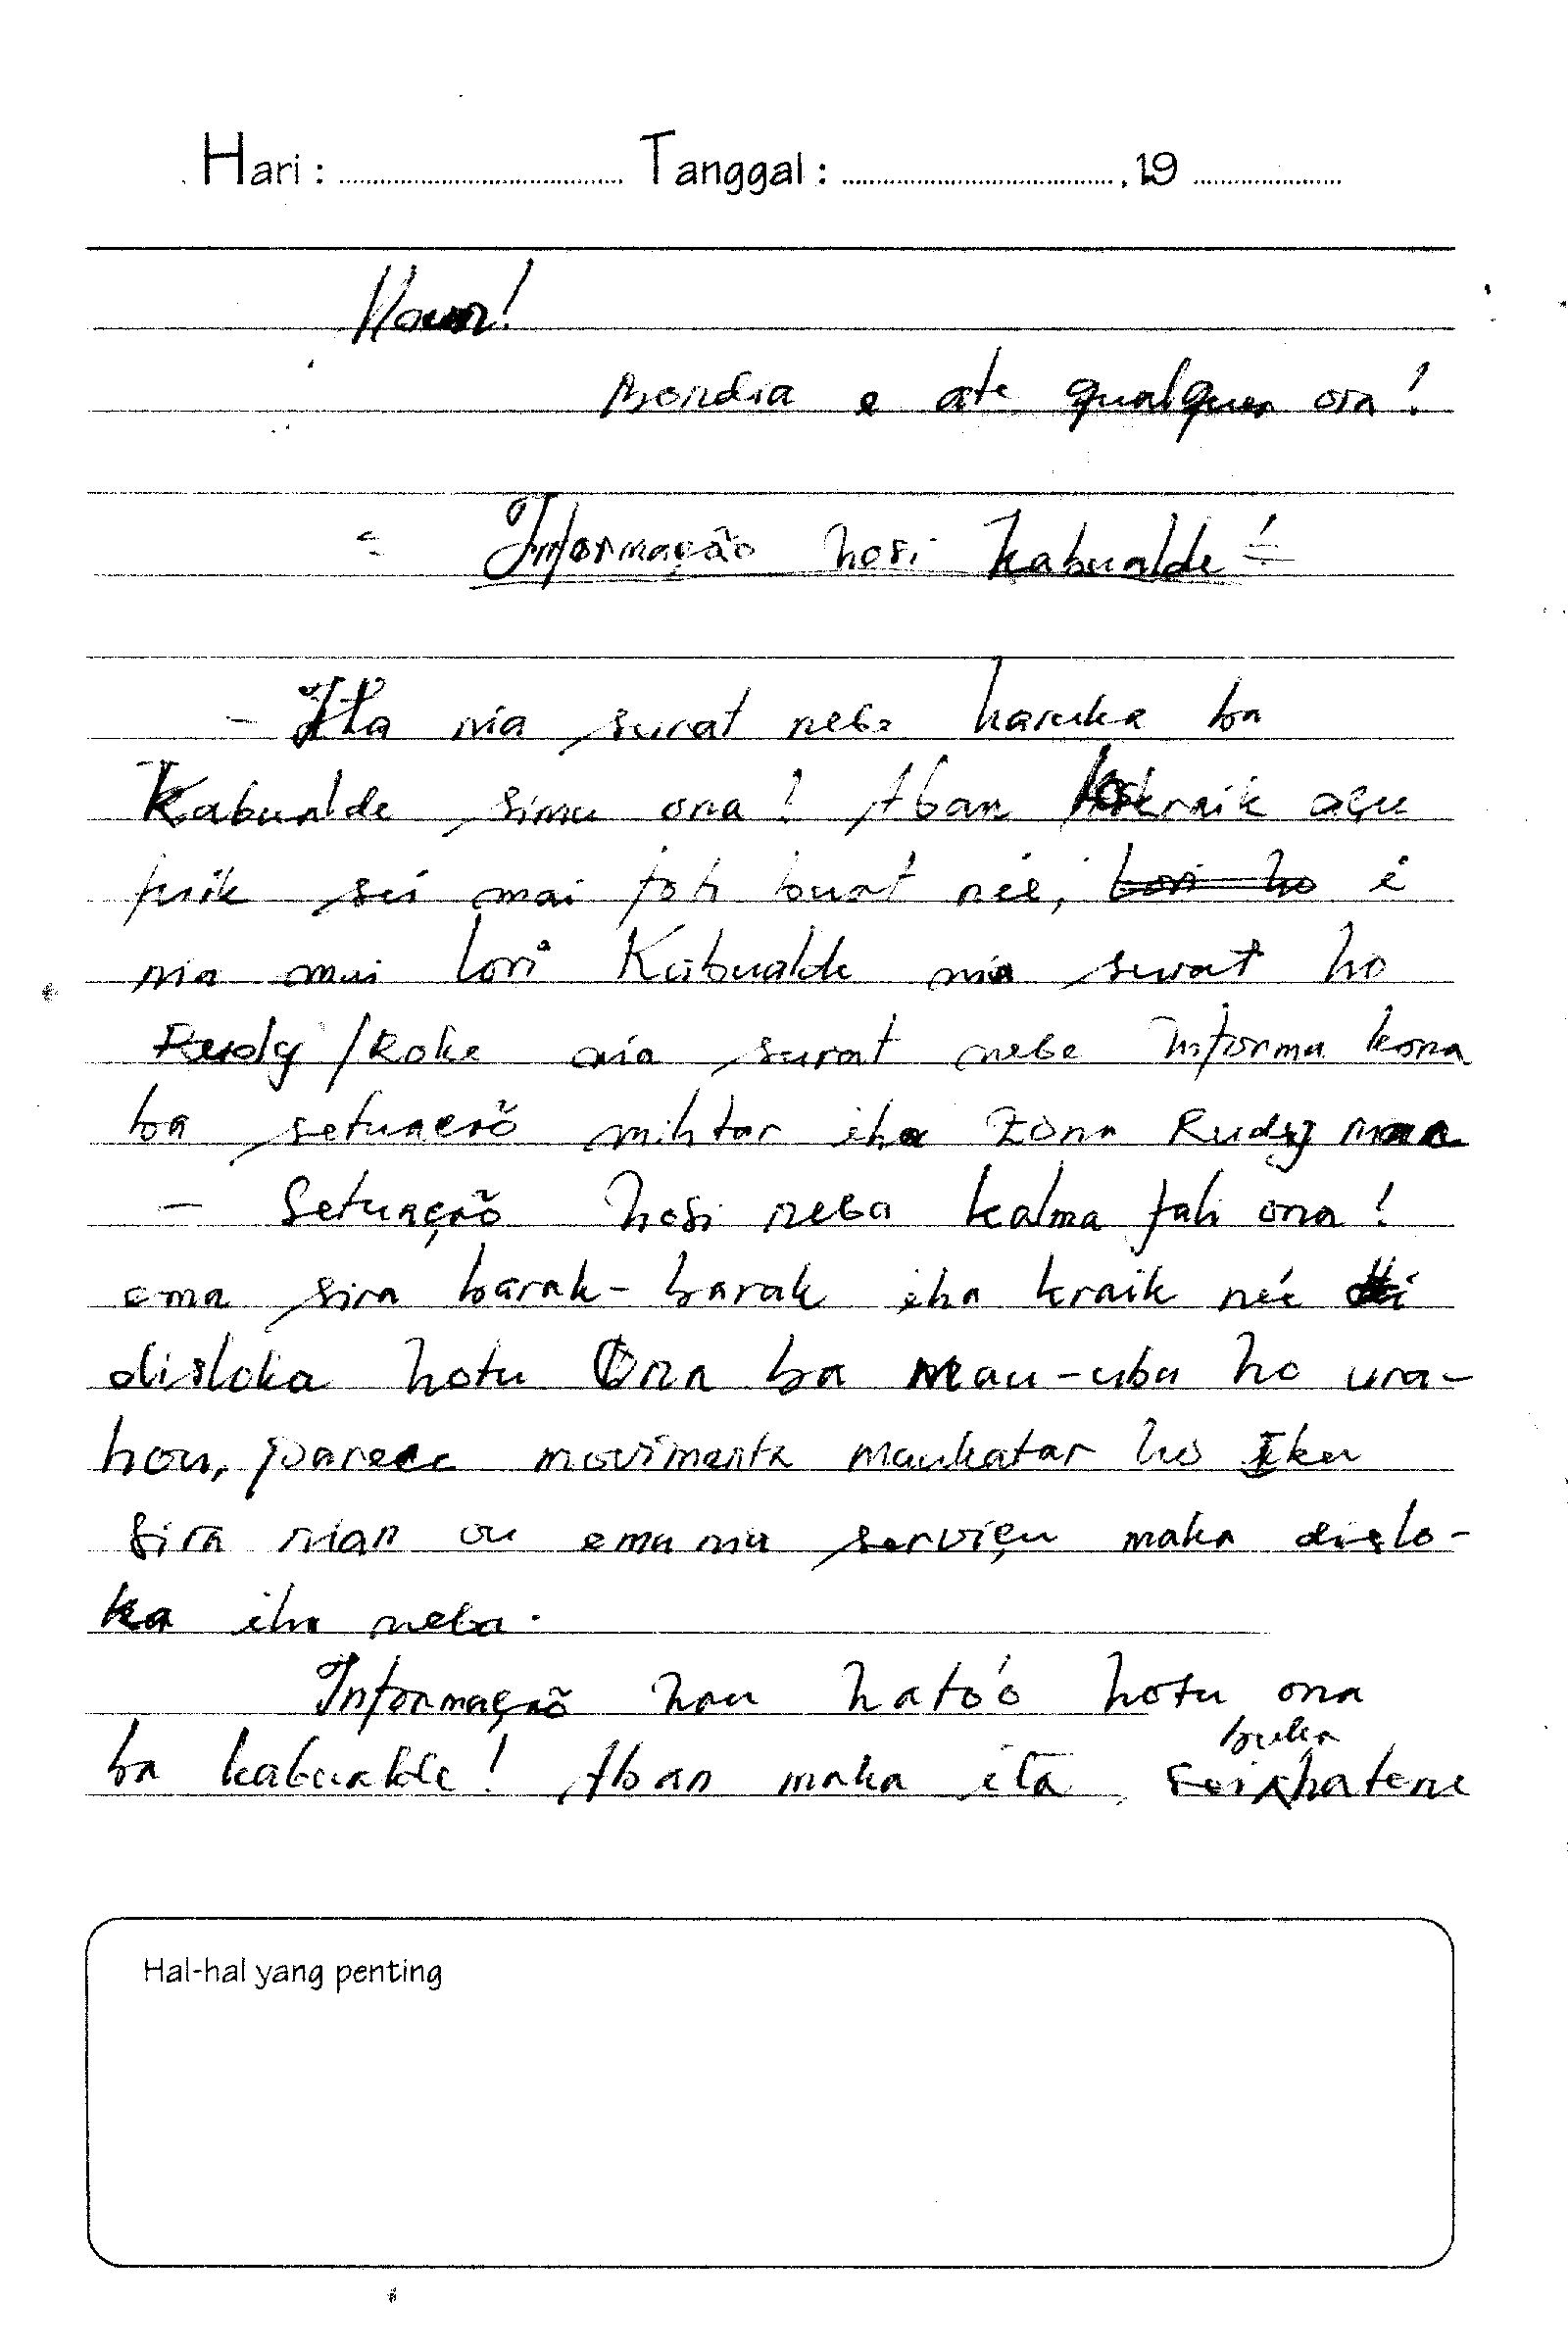 Hari : .................................. Tanggal : .................................., 19 ..................
Maun!
Bondia e ate qualquer ora!
= Informação hosi Kabualde! =
- Ita nia surat nebe haruka ba
Kabualde simu ona! Aban lokraik açu
sei mai foti surat neé, ~~lori ho~~ é
nia mai lori Kabualde nia surat ho
Rudy /Roke nia surat nebe informa kona
ba setuação militar iha zona Rudy
- Setuação hosi neba kalma fali ona!
ema sira barak-barak iha kraik neé
disloka hotu Ona ba Mau-ubu ho ura-
hou, parece movimenta maukatar ho
sira nian ou ema nia serviçu maka dislo-
ka iha neba.
Informação hau ható'o hotu ona
ba kabualde! Aban maka ita sei buka hatene
Hal-hal yang penting